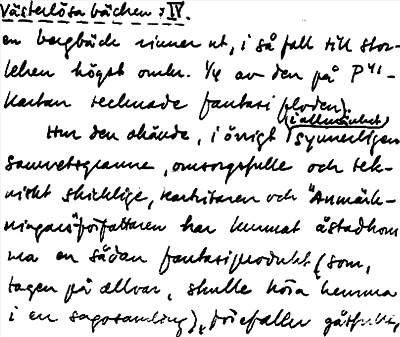 Västerlösa bäcken : IV.
en bergbäck rinner ut, i så fall till stor-
leken högst omkr. 1/4 av den på P⁴¹-
kartan tecknade fantasifloden).
(i allmänhet)
Hur den okände, i övrigt synnerligen
samvetsgranne, omsorgsfulle och tek-
niskt skicklige, kartritaren och "Anmärk-
ningars" författaren har kunnat åstadkom
ma en sådan fantasiprodukt (som,
tagen på allvar, skulle höra hemma
i en sagosamling), förefaller gåtfullt,